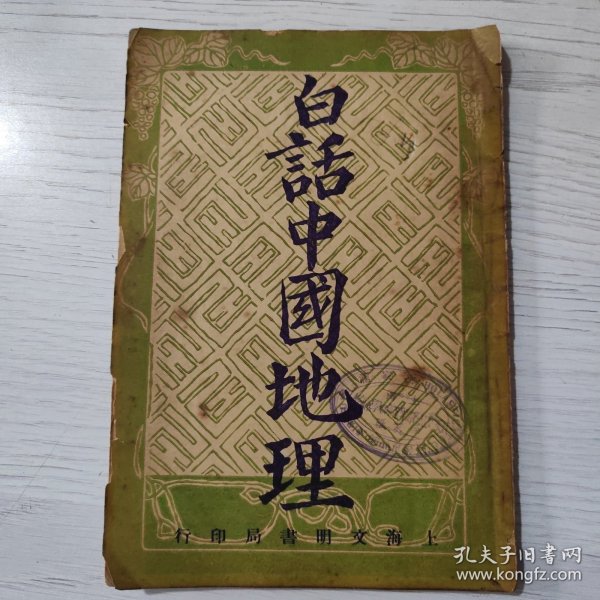 白話中國地理
上海文明書局印行
孔夫子旧书网
www.kongfz.com